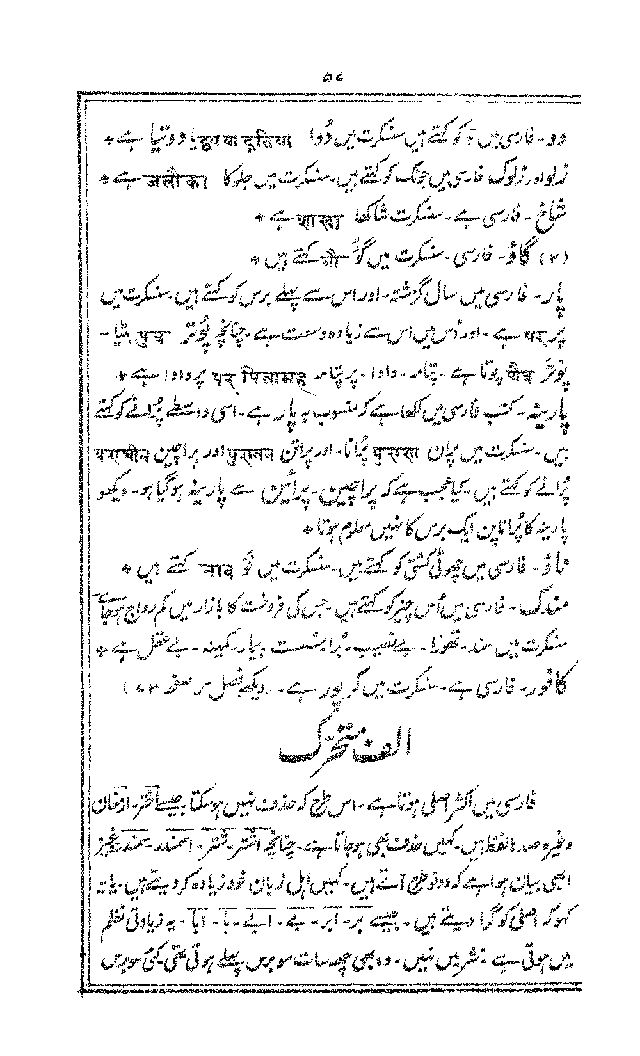 ۵۷
دو - فارسی میں ۲ کو کہتے ہیں سنسکرت میں دُوا द्वया दूतिया یا دوتیا ہے *
زلو اور زلوک فارسی میں جنک کو کہتے ہیں - سنسکرت میں جلوکا जलौका ہے *
شاخ - فارسی ہے - سنسکرت شاکھا शाखा ہے *
گاؤ - فارسی - سنسکرت میں گَو गौ کہتے ہیں *
پار - فارسی میں سال گزشتہ - اور اس سے پہلے برس کو کہتے ہیں سنسکرت میں
پر पर ہے - اور اُس میں اس سے زیادہ وسعت ہے - چنانچہ پُتر पुत्र بیٹا -
پوتر पौत्र پوتا ہے - پتامہ - دادا - پرپتامہ पर पितामह پر دادا ہے *
پارینہ - کتب فارسی میں لکھا ہے کہ منسوب بہ پار ہے - اسی واسطے پُرانے کو کہتے
ہیں - سنسکرت میں پران पुराण پُرانا - اور پراتن पुरातन اور پراچین पराचीन
پُرانے کو کہتے ہیں - کیا عجب ہے کہ پراچین - پرائین سے پارینہ ہو گیا ہو - دیکھو
پارینہ کا پُراناپن ایک برس کا نہیں معلوم ہوتا *
ناؤ - فارسی میں چھوٹی کشتی کو کہتے ہیں - سنسکرت میں نَو नाव کہتے ہیں *
مندک - فارسی میں اُس چیز کو کہتے ہیں - جس کی فروخت کا بازار میں کم رواج ہو جائے
سنسکرت میں مند - تھوڑا - بےنصیب - بُرا - سست - بیمار - کمینہ - بے عقل ہے *
کافور - فارسی ہے - سنسکرت میں کرپور ہے - دیکھو فصل صفحہ
الف متحرک
فارسی میں اکثر اصلی ہوتا ہے - اس طرح کہ حذف نہیں ہو سکتا جیسے اختر - افغان
وغیرہ صدہا لفظ ہیں - کہیں حذف بھی ہو جاتا ہے - چنانچہ اُشتر - شتر - اسمند - سمند وغیرہ
ابھی بیان ہوا ہے کہ دو طرح آتے ہیں - کہیں اہل زبان خود زیادہ کر دیتے ہیں - یا یہ
کہو کہ اصلی کو گرا دیتے ہیں - جیسے بر - ابر - بے - ابے - با - ابا - یہ زیادتی نظم
میں ہوتی ہے - نثر میں نہیں - وہ بھی چھ سات سو برس پہلے ہوتی تھی - کئی سو برس